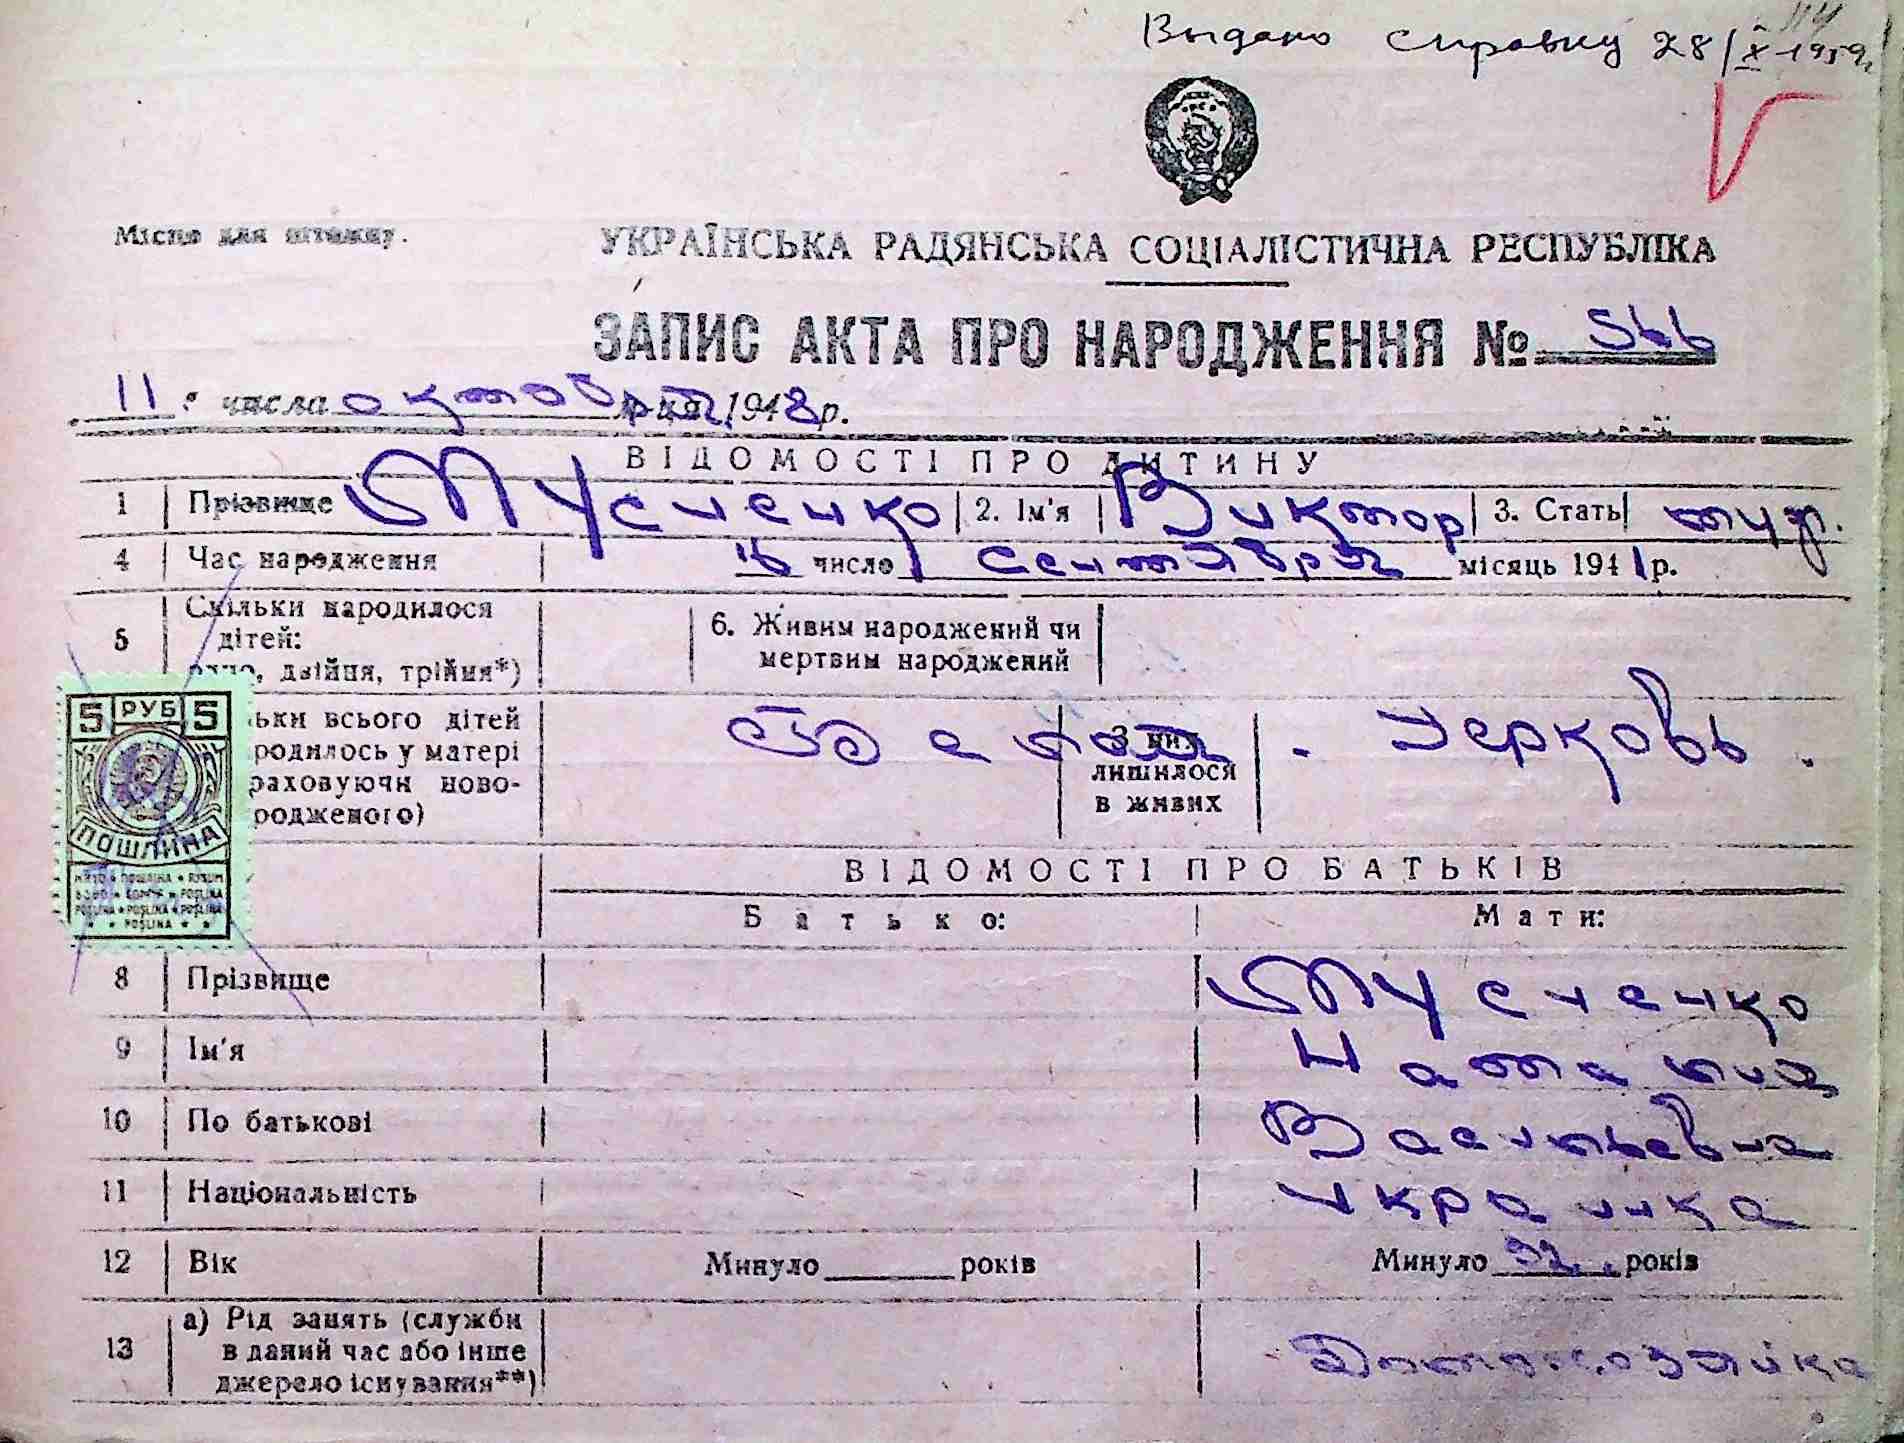 Выдано справку 28/X 1959г
Місце для штампу.
УКРАЇНСЬКА РАДЯНСЬКА СОЦІАЛІСТИЧНА РЕСПУБЛІКА
ЗАПИС АКТА ПРО НАРОДЖЕННЯ № 566
11 числа октября 1948 р.
ВІДОМОСТІ ПРО ДИТИНУ
1 Прізвище Мусиенко 2. Ім'я Виктор 3. Стать муж.
4 Час народження 16 число сентября місяць 1941 р.
5 Скільки народилося
дітей:
одно, двійня, трійня*)
6. Живим народжений чи
мертвим народжений
ьки всього дітей
родилось у матері
раховуючи ново-
родженого)
З них
лишилося
в живих
Белая Церковь.
5 РУБ 5
ПОШЛИНА
ВІДОМОСТІ ПРО БАТЬКІВ
Батько: Мати:
8 Прізвище Мусиенко
9 Ім'я Наталия
10 По батькові Васильевна
11 Національність украинка
12 Вік Минуло років Минуло 32 років
13 а) Рід занять (служби
в даний час або інше
джерело існування**)
Домохозяйка